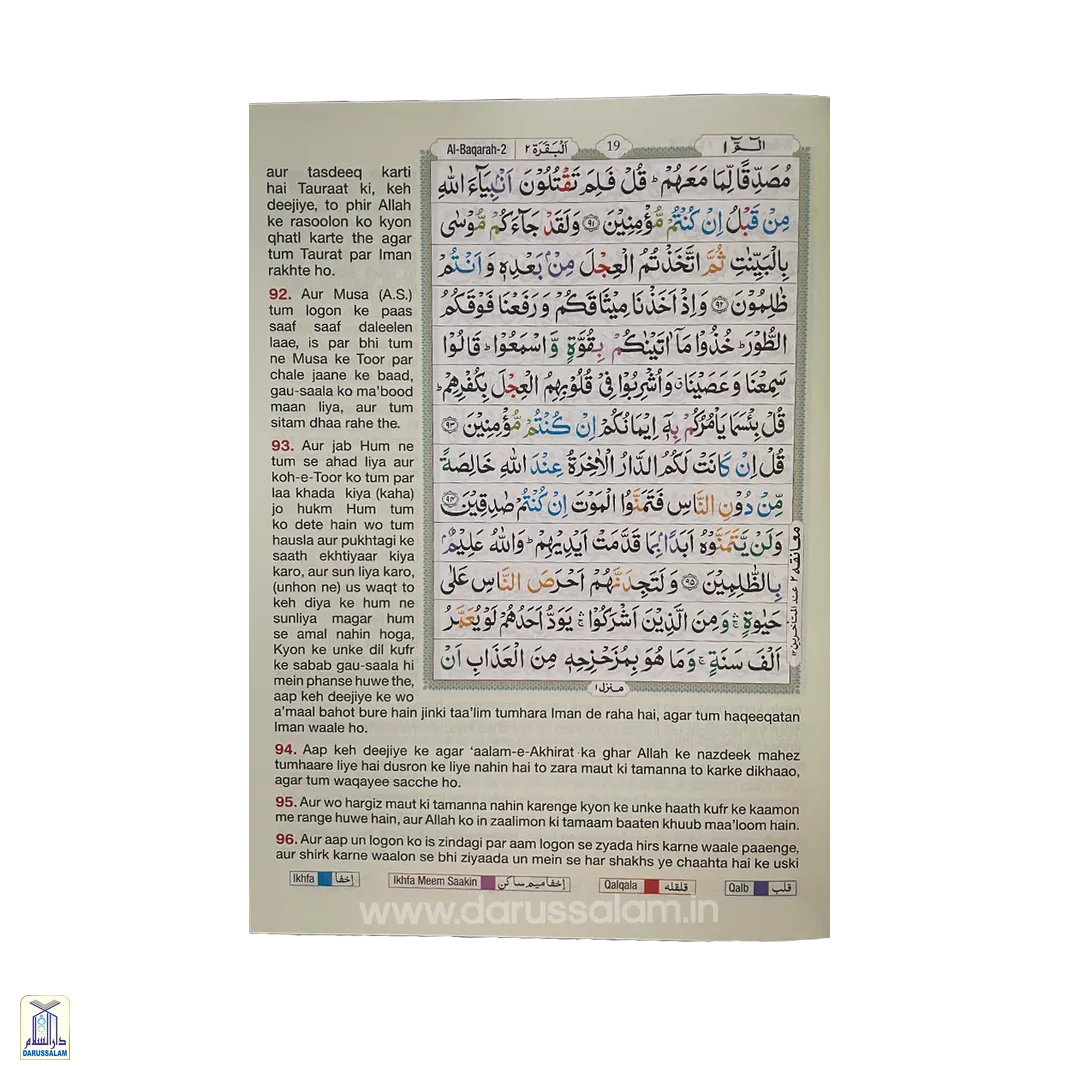 Al-Baqarah-2 اَلْبَقَرَة ٢
19
الٓمّٓ ١
مُصَدِّقًا لِّمَا مَعَهُمْ ؕ قُلْ فَلِمَ تَقْتُلُوْنَ اَنْۢبِيَآءَ اللّٰهِ
مِنْ قَبْلُ اِنْ كُنْتُمْ مُّؤْمِنِيْنَ ﴿۹۱﴾ وَلَقَدْ جَآءَكُمْ مُّوْسٰى
بِالْبَيِّنٰتِ ثُمَّ اتَّخَذْتُمُ الْعِجْلَ مِنْۢ بَعْدِهٖ وَاَنْتُمْ
ظٰلِمُوْنَ ﴿۹۲﴾ وَاِذْ اَخَذْنَا مِيْثَاقَكُمْ وَرَفَعْنَا فَوْقَكُمُ
الطُّوْرَ ؕ خُذُوْا مَاۤ اٰتَيْنٰكُمْ بِقُوَّةٍ وَّاسْمَعُوْا ؕ قَالُوْا
سَمِعْنَا وَعَصَيْنَا ۗ وَاُشْرِبُوْا فِيْ قُلُوْبِهِمُ الْعِجْلَ بِكُفْرِهِمْ ؕ
قُلْ بِئْسَمَا يَاْمُرُكُمْ بِهٖۤ اِيْمَانُكُمْ اِنْ كُنْتُمْ مُّؤْمِنِيْنَ ﴿۹۳﴾
قُلْ اِنْ كَانَتْ لَكُمُ الدَّارُ الْاٰخِرَةُ عِنْدَ اللّٰهِ خَالِصَةً
مِّنْ دُوْنِ النَّاسِ فَتَمَنَّوُا الْمَوْتَ اِنْ كُنْتُمْ صٰدِقِيْنَ ﴿۹۴﴾
وَلَنْ يَّتَمَنَّوْهُ اَبَدًۢا بِمَا قَدَّمَتْ اَيْدِيْهِمْ ؕ وَاللّٰهُ عَلِيْمٌۢ
بِالظّٰلِمِيْنَ ﴿۹۵﴾ وَلَتَجِدَنَّهُمْ اَحْرَصَ النَّاسِ عَلٰى
حَيٰوةٍ ۛۚ وَمِنَ الَّذِيْنَ اَشْرَكُوْا ۛۚ يَوَدُّ اَحَدُهُمْ لَوْ يُعَمَّرُ
اَلْفَ سَنَةٍ ۚ وَمَا هُوَ بِمُزَحْزِحِهٖ مِنَ الْعَذَابِ اَنْ
منزل ١
معانقه ٢ عند المتاخرين ١٢
aur tasdeeq karti
hai Tauraat ki, keh
deejiye, to phir Allah
ke rasoolon ko kyon
qhatl karte the agar
tum Taurat par Iman
rakhte ho.
92. Aur Musa (A.S.)
tum logon ke paas
saaf saaf daleelen
laae, is par bhi tum
ne Musa ke Toor par
chale jaane ke baad,
gau-saala ko ma'bood
maan liya, aur tum
sitam dhaa rahe the.
93. Aur jab Hum ne
tum se ahad liya aur
koh-e-Toor ko tum par
laa khada kiya (kaha)
jo hukm Hum tum
ko dete hain wo tum
hausla aur pukhtagi ke
saath ekhtiyaar kiya
karo, aur sun liya karo,
(unhon ne) us waqt to
keh diya ke hum ne
sunliya magar hum
se amal nahin hoga,
Kyon ke unke dil kufr
ke sabab gau-saala hi
mein phanse huwe the,
aap keh deejiye ke wo
a'maal bahot bure hain jinki taa'lim tumhara Iman de raha hai, agar tum haqeeqatan
Iman waale ho.
94. Aap keh deejiye ke agar 'aalam-e-Akhirat ka ghar Allah ke nazdeek mahez
tumhaare liye hai dusron ke liye nahin hai to zara maut ki tamanna to karke dikhaao,
agar tum waqayee sacche ho.
95. Aur wo hargiz maut ki tamanna nahin karenge kyon ke unke haath kufr ke kaamon
me range huwe hain, aur Allah ko in zaalimon ki tamaam baaten khuub maa'loom hain.
96. Aur aap un logon ko is zindagi par aam logon se zyada hirs karne waale paaenge,
aur shirk karne waalon se bhi ziyaada un mein se har shakhs ye chaahta hai ke uski
Ikhfa إخفا Ikhfa Meem Saakin إخفا ميم ساكن Qalqala قلقله Qalb قلب
www.darussalam.in
دار السلام
DARUSSALAM